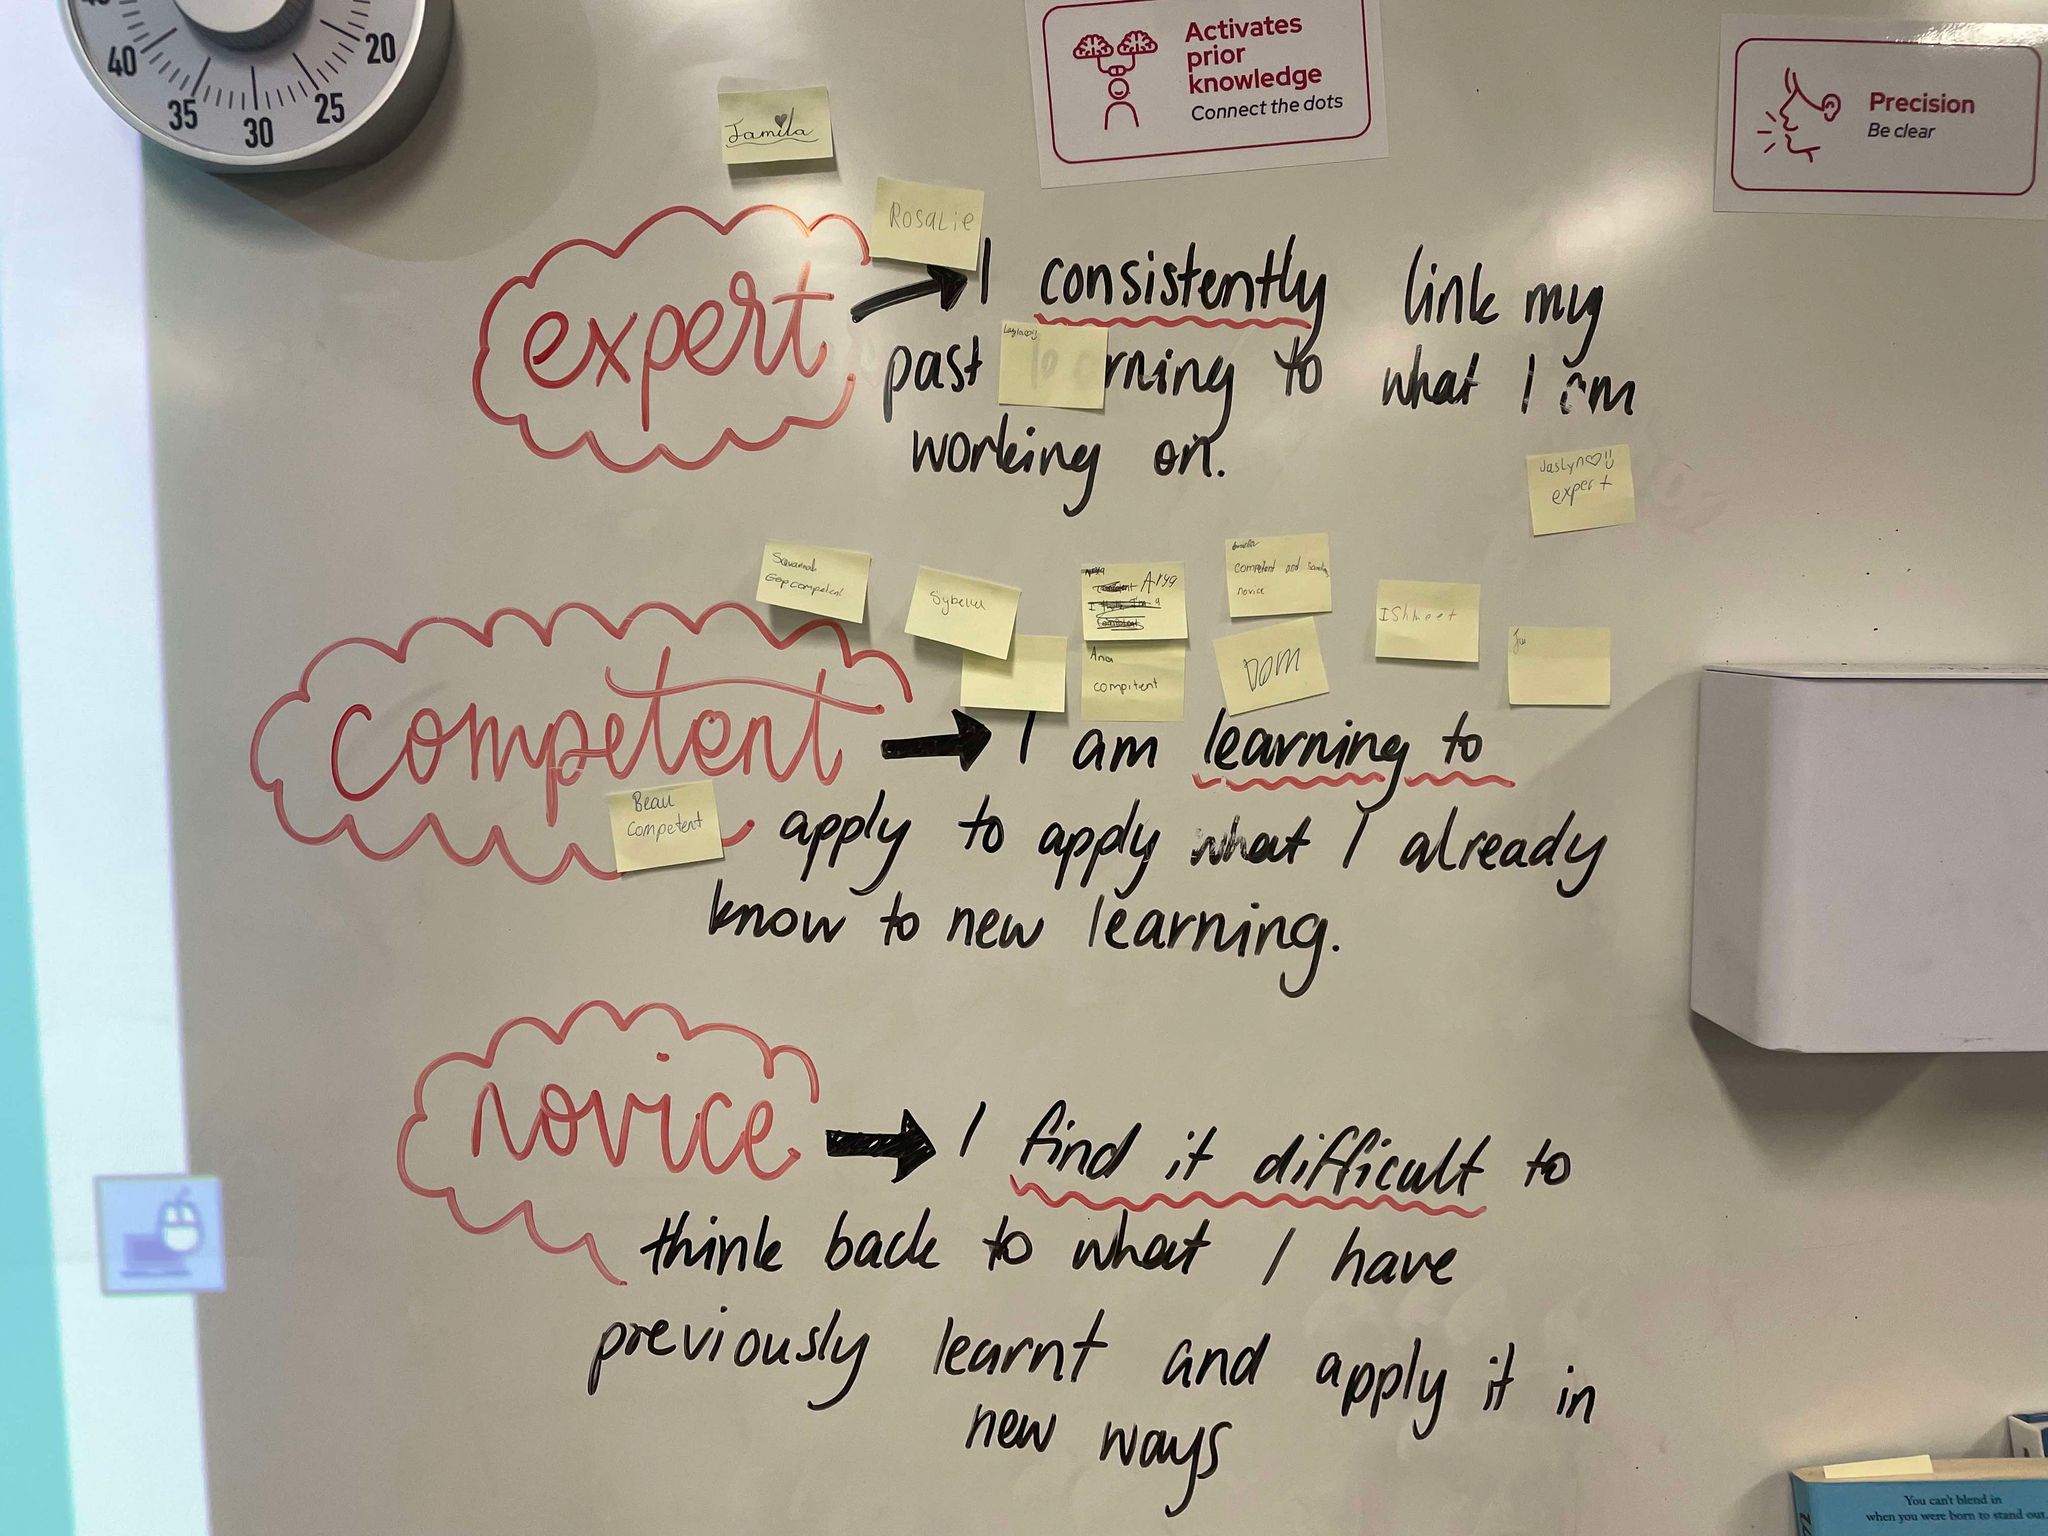 40
35
30
25
20
Activates
prior
knowledge
Connect the dots
Precision
Be clear
Jamila
Rosalie
expert
I consistently link my
past rning to what I am
working on.
Jaslyn
expert
Savannah
competent
Sybella
Arya
competent and
novice
Ishmeet
Ana
compitent
Dom
competent
I am learning to
apply to apply what I already
know to new learning.
Beau
Competent
novice
I find it difficult to
think back to what I have
previously learnt and apply it in
new ways
You can't blend in
when you were born to stand out.